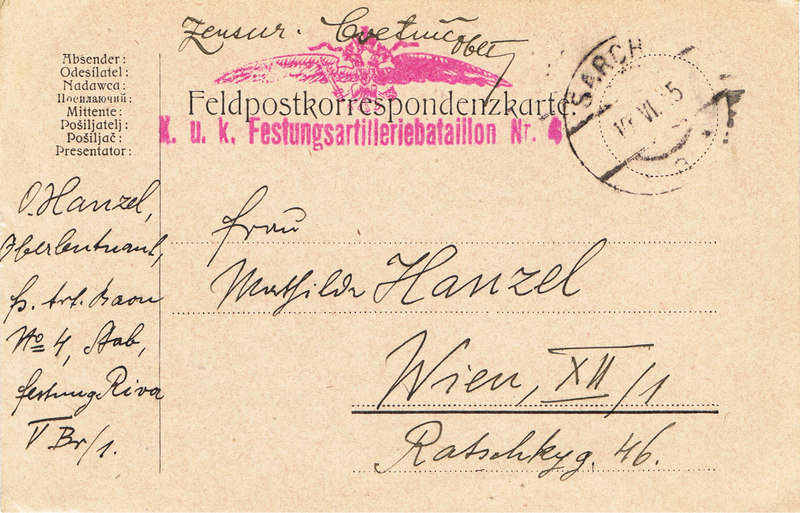 Zensur. Cvetnič Oblt
Feldpostkorrespondenzkarte.
K. u. k. Festungsartilleriebataillon Nr. 4
SARCH
VI. 5
a
Absender:
Odesílatel:
Nadawca:
Посилаючий:
Mittente:
Pošiljatelj:
Pošiljač:
Presentator:
O. Hanzel,
Oberleutnant,
fs. Art. Baon
No 4, Stab,
Festung Riva
V. Br/1.
Frau
Mathilde Hanzel
Wien, XII/1
Ratschkyg. 46.